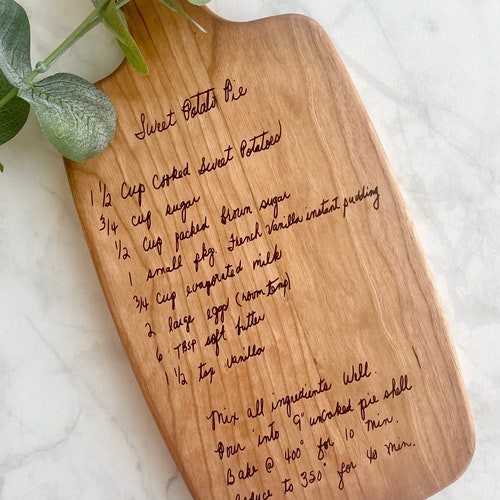 Sweet Potato Pie
1 1/2 Cup Cooked Sweet Potatoes
3/4 cup sugar
1/2 cup packed brown sugar
1 small pkg. French Vanilla instant pudding
3/4 cup evaporated milk
2 large eggs (room temp)
6 TBSP soft butter
1 1/2 tsp vanilla
Mix all ingredients Well.
Pour into 9" uncooked pie shell
Bake @ 400° for 10 Min.
Reduce to 350° for 40 min.